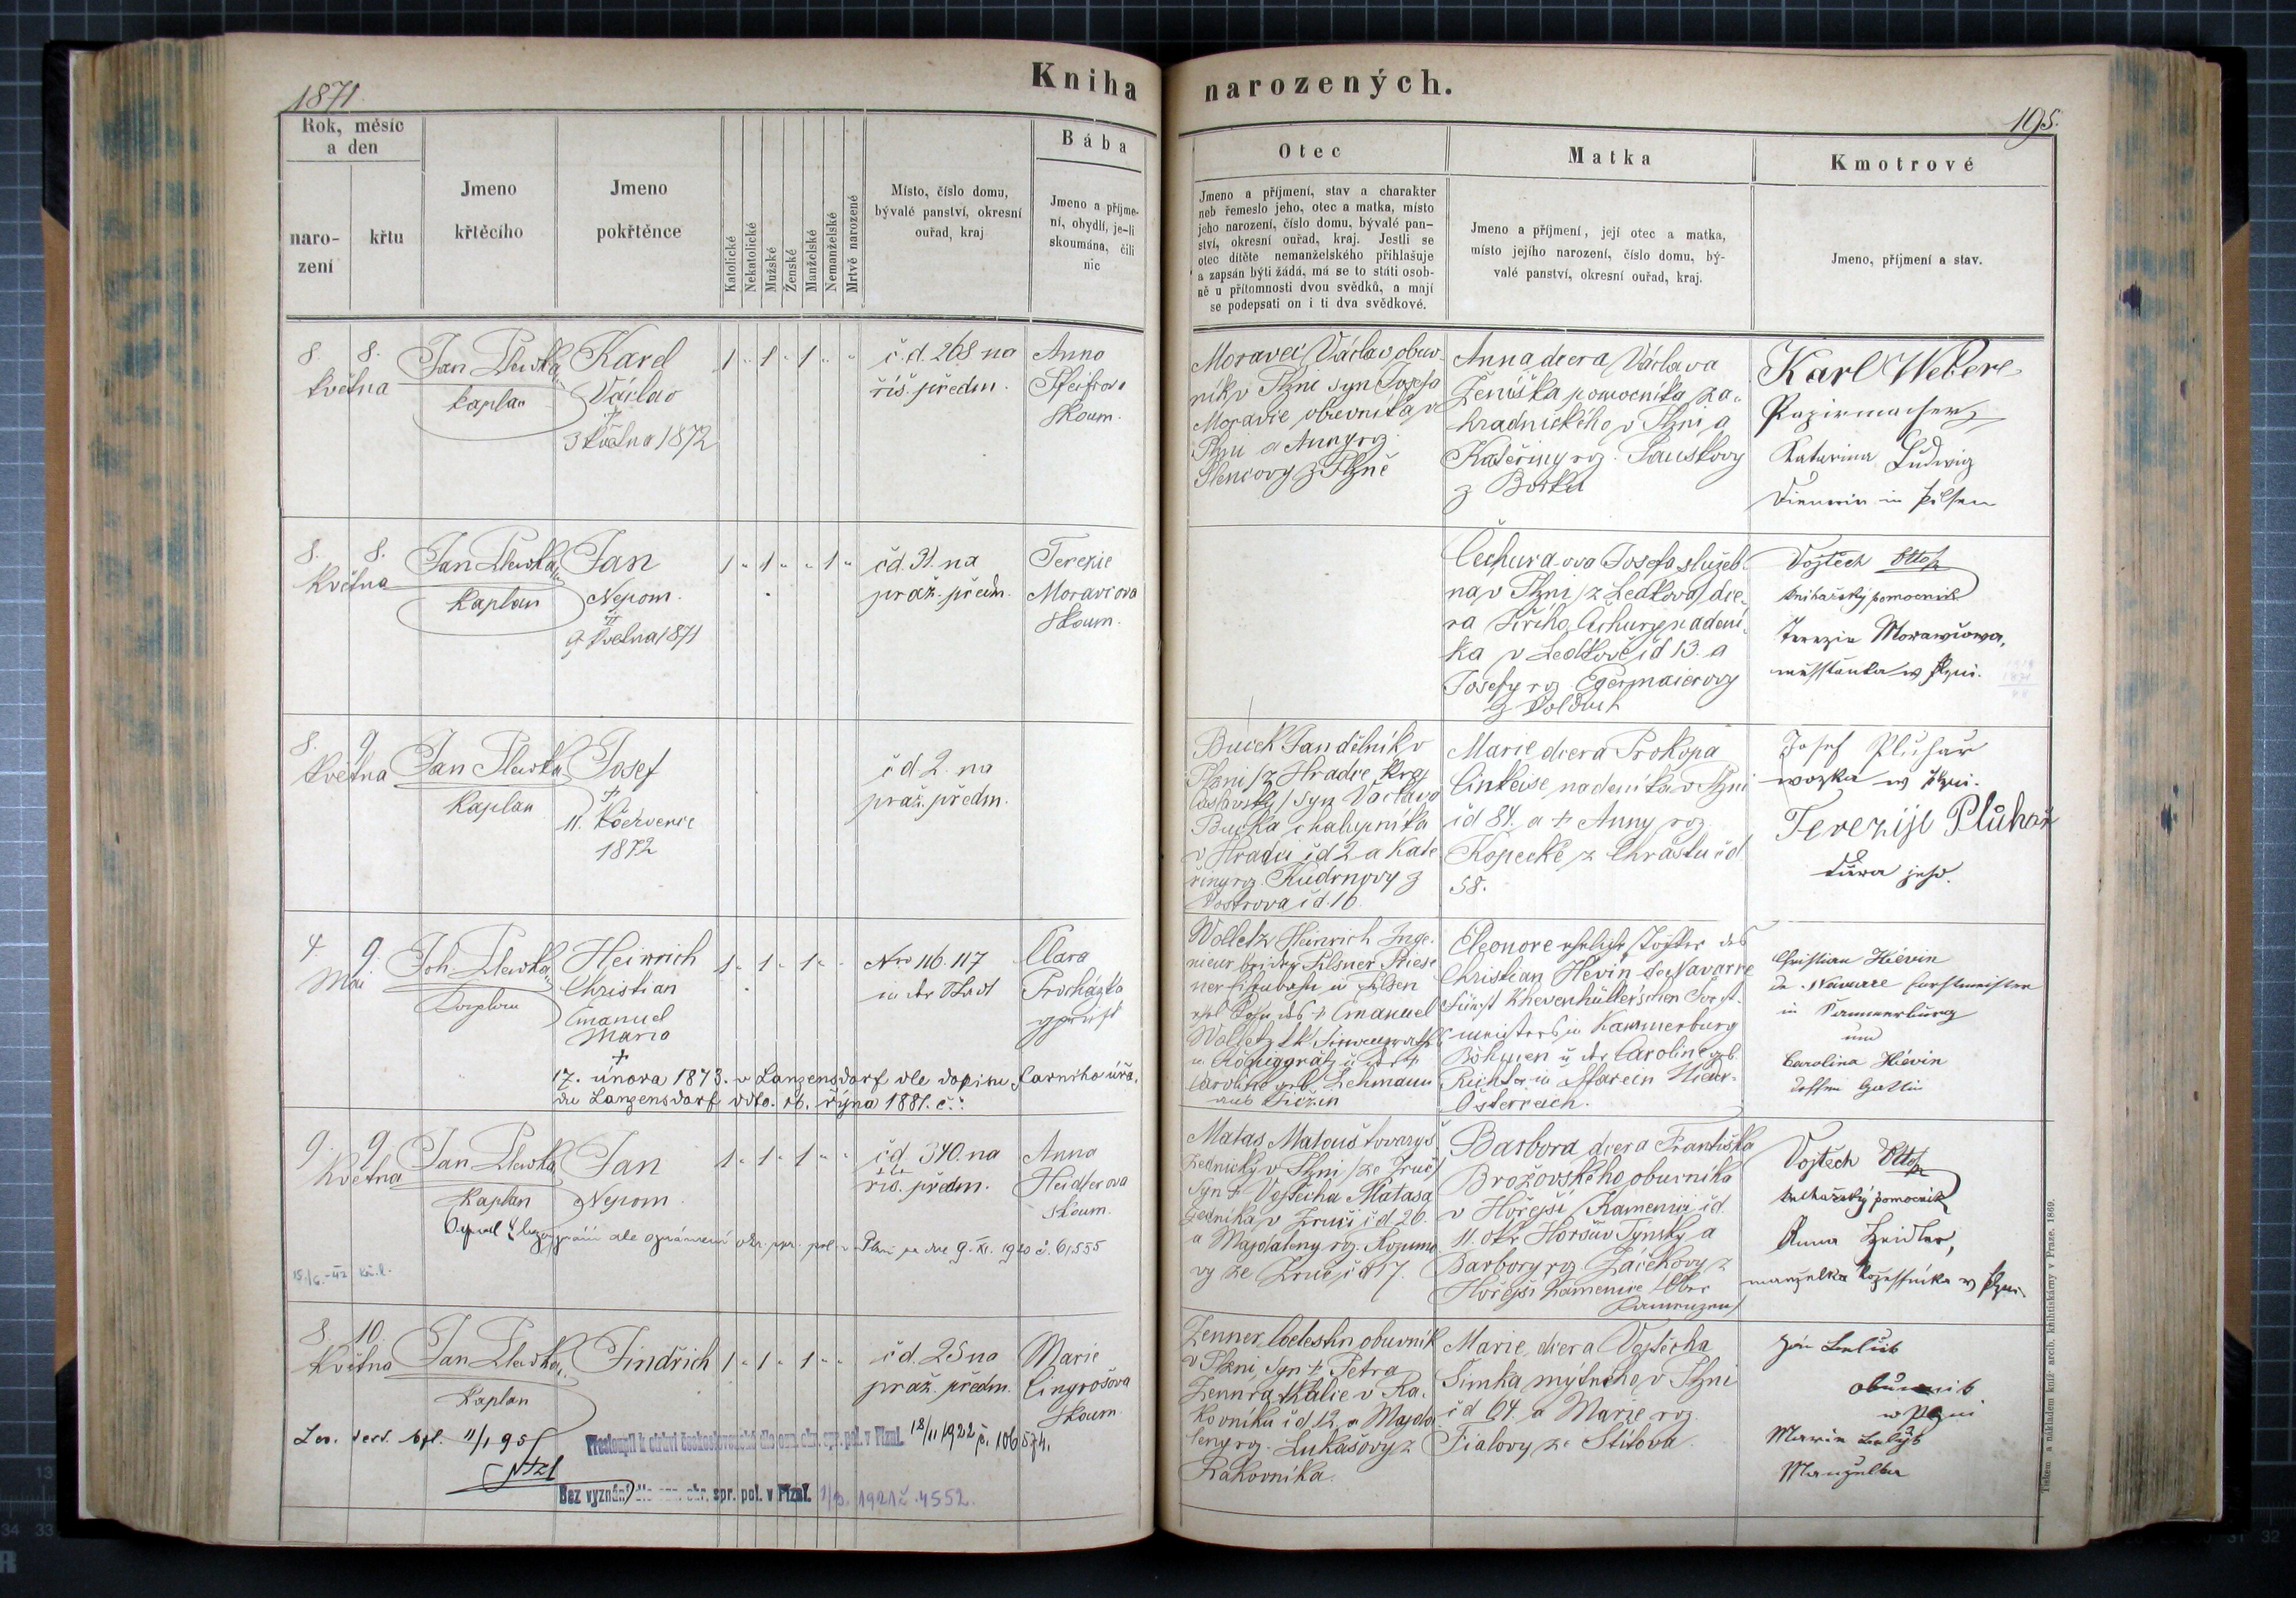 1871
Kniha narozených.
195.
Rok, měsíc a den
narození
křtu
Jmeno křtěcího
Jmeno pokřtěnce
Katolické
Nekatolické
Mužské
Ženské
Manželské
Nemanželské
Mrtvě narozené
Místo, číslo domu,
bývalé panství, okresní
ouřad, kraj
Bába
Jmeno a příjme-
ní, obydlí, je-li
skoumána, čili
nic
Otec
Jmeno a příjmení, stav a charakter
neb řemeslo jeho, otec a matka, místo
jeho narození, číslo domu, bývalé pan-
ství, okresní ouřad, kraj. Jestli se
otec dítěte nemanželského přihlašuje
a zapsán býti žádá, má se to státi osob-
ně u přítomnosti dvou svědků, a mají
se podepsati on i ti dva svědkové.
Matka
Jmeno a příjmení, její otec a matka,
místo jejího narození, číslo domu, bý-
valé panství, okresní ouřad, kraj.
Kmotrové
Jmeno, příjmení a stav.
8. 8.
května
Jan
kaplan
Karel
Václav
+
3 května 1872
1 " 1 " 1 " "
č.d. 268 na
říš. předm.
Anna
skoum.
Moravec Václav obuv-
ník v Plzni syn Josefa
Moravce obuvníka v
Plzni a Anny roz.
z Plzně
Anna dcera Václava
Ženíška pomocníka za-
hradnického v Plzni a
Kateřiny roz.
z Borku
Karl Weber
Papiermacher
Katarina Ludwig
Dienerin in Pilsen
8. 8.
Května
Jan
Kaplan
Jan
Nepom.
9 května 1871
1 " 1 " " 1 "
čd. 31. na
praž. předm.
Terezie
Moravcova
skoum.
Čechura-ova Josefa služeb-
na v Plzni /z Ledkova/ dce-
ra Jiřího Čechury nadení-
ka v Ledkově čd 13. a
Josefy roz.
z
Vojtěch
knihařský pomocnik
Terezie Morawcowa,
měsstanka w Plzni.
8. 9.
května
Jan
Kaplan
Josef
+
11. července
1872
č d 2. na
praž. předm.
Bucek Jan dělník v
Plzni /z Hradce kraj
čáslavský/ syn Václava
Bucka chalupníka
v Hradci čd 2 a Kate-
řiny roz. Kudrnovy z
čd. 16.
Marie dcera Prokopa
nadeníka v Plzni
čd 84. a + Anny roz.
Kopecké z Chrástu čd
58.
Josef Pluhař
w Plzni.
Terezije Pluhař
jeho.
4. 9.
Mai
Joh.
Kaplan
Heinrich
Christian
Emanuel
Maria
+
17. února 1873. v Lanzensdorf dle dopisu farního úřa-
du Lanzensdorf ddto. 26. října 1881. č.:
1 " 1 " 1 " "
Nro 116. 117
in der Stadt
Clara
Procházka
geprüft
Wolletz Heinrich Inge-
nieur bei der Pilsner Priese-
ner Eisenbahn in Pilsen
ehl. Sohn des + Emanuel
Wolletz
in Königgrätz u. der +
Caroline geb. Lehmann
aus
Eleonore eheliche Tochter des
Christian Hevin de Navarre
Fürst Khevenhüllerschen Forst-
meisters in Kammerburg
Böhmen u. der Caroline geb.
Richter in Nieder-
Österreich.
Christian Hévin
de Navarre Forstmeister
in Kammerburg
und
Carolina Hévin
dessen Gattin
9. 9.
Května
Jan
Kaplan
Jan
Nepom.
1 " 1 " 1 " "
čd. 340. na
říš. předm.
Anna
Heidlerova
skoum.
dle oznámení okr. spr. pol. v Plzni ze dne 9. XI. 1920 č. 61555
Matas Matouš tovaryš
zednický v Plzni /ze Zruč/
syn + Vojtěcha Matasa
zedníka v Zruči čd 20.
a Majdaleny roz.
vy ze Zruče čd 17.
Barbora dcera Františka
Brožovského obuvníka
v Hořejší Kamenici čd.
11. okr. Horšův Týnský a
Barbory roz. Žáčkovy z
Hořejší Kamenice /Ober
Kamenzen/
Vojtěch
knihařský pomocnik
Anna Heidler,
manželka w Plzni.
8. 10.
Května
Jan
Kaplan
Jindřich
1 " 1 " 1 " "
č d. 25 na
praž. předm.
Marie
Cingrošova
skoum.
Přestoupil k církvi československé dle ozn. okr. spr. pol. v Plzni. 18/11 1922 č. 106574.
Bez vyznání dle ozn. okr. spr. pol. v Plzni. 1921 č. 4552.
Zenner Celestin obuvník
v Plzni, syn + Petra
Zennra tkalce v Ra-
kovníku čd 12. a Majda-
leny roz. Lukašovy z
Rakovníka.
Marie, dcera Vojtěcha
Šimka mýtného v Plzni
čd 64. a Marie roz.
Fialovy ze Štítova.
Jan
obuwnik
w Plzni
Marie
Manželka
Tiskem a nákladem kníž. arcib. knihtiskárny v Praze. 1869.